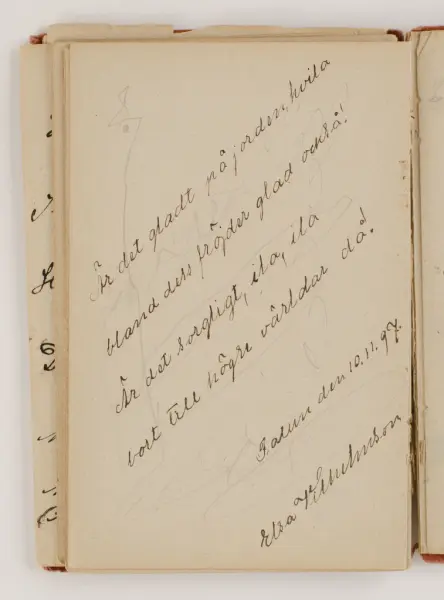 Är det gladt på jorden, hvila
bland dess fröjder glad också!
Är det sorgligt, ila, ila
bort till högre världar då!
Falun den 10.11.97.
Elsa Vilhelmson